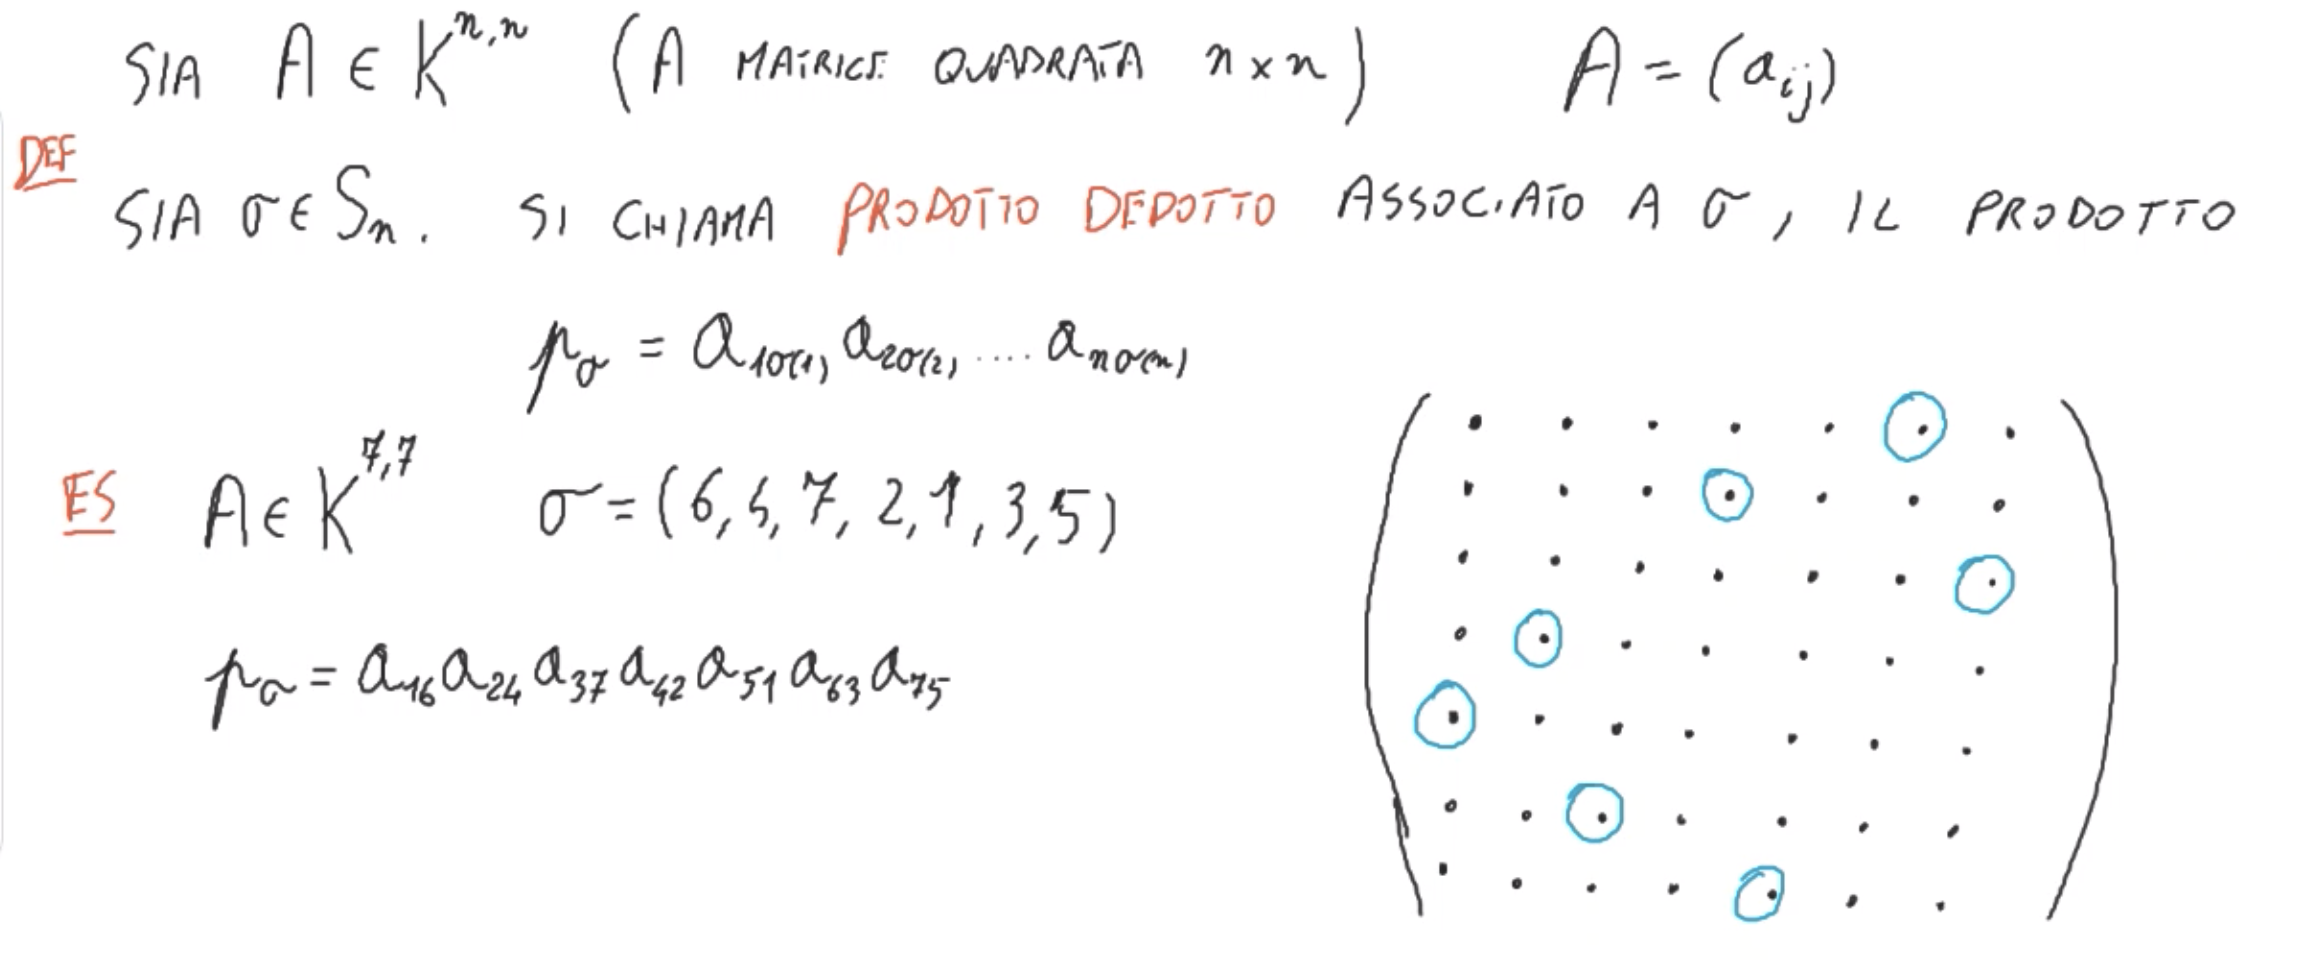 SIA A ∈ K^{n,n} (A MATRICE QUADRATA n x n) A = (a_{ij})
DEF
SIA σ ∈ S_n. SI CHIAMA PRODOTTO DEDOTTO ASSOCIATO A σ, IL PRODOTTO
p_σ = a_{1σ(1)} a_{2σ(2)} .... a_{nσ(n)}
ES A ∈ K^{7,7} σ = (6, 4, 7, 2, 1, 3, 5)
p_σ = a_{16} a_{24} a_{37} a_{42} a_{51} a_{63} a_{75}